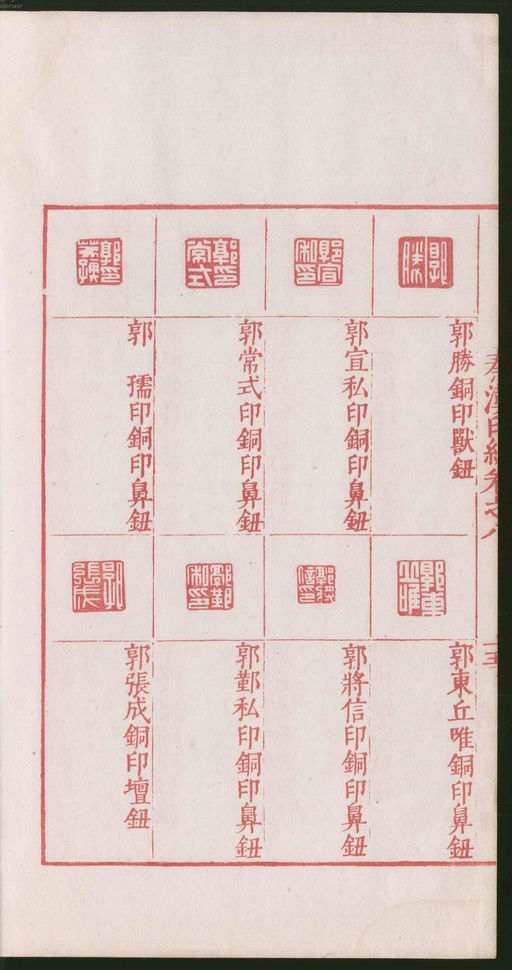 郭勝銅印獸鈕
郭宣私印銅印鼻鈕
郭常式印銅印鼻鈕
郭 㻴印銅印鼻鈕
郭東丘唯銅印鼻鈕
郭將信印銅印鼻鈕
郭鄞私印銅印鼻鈕
郭張成銅印壇鈕